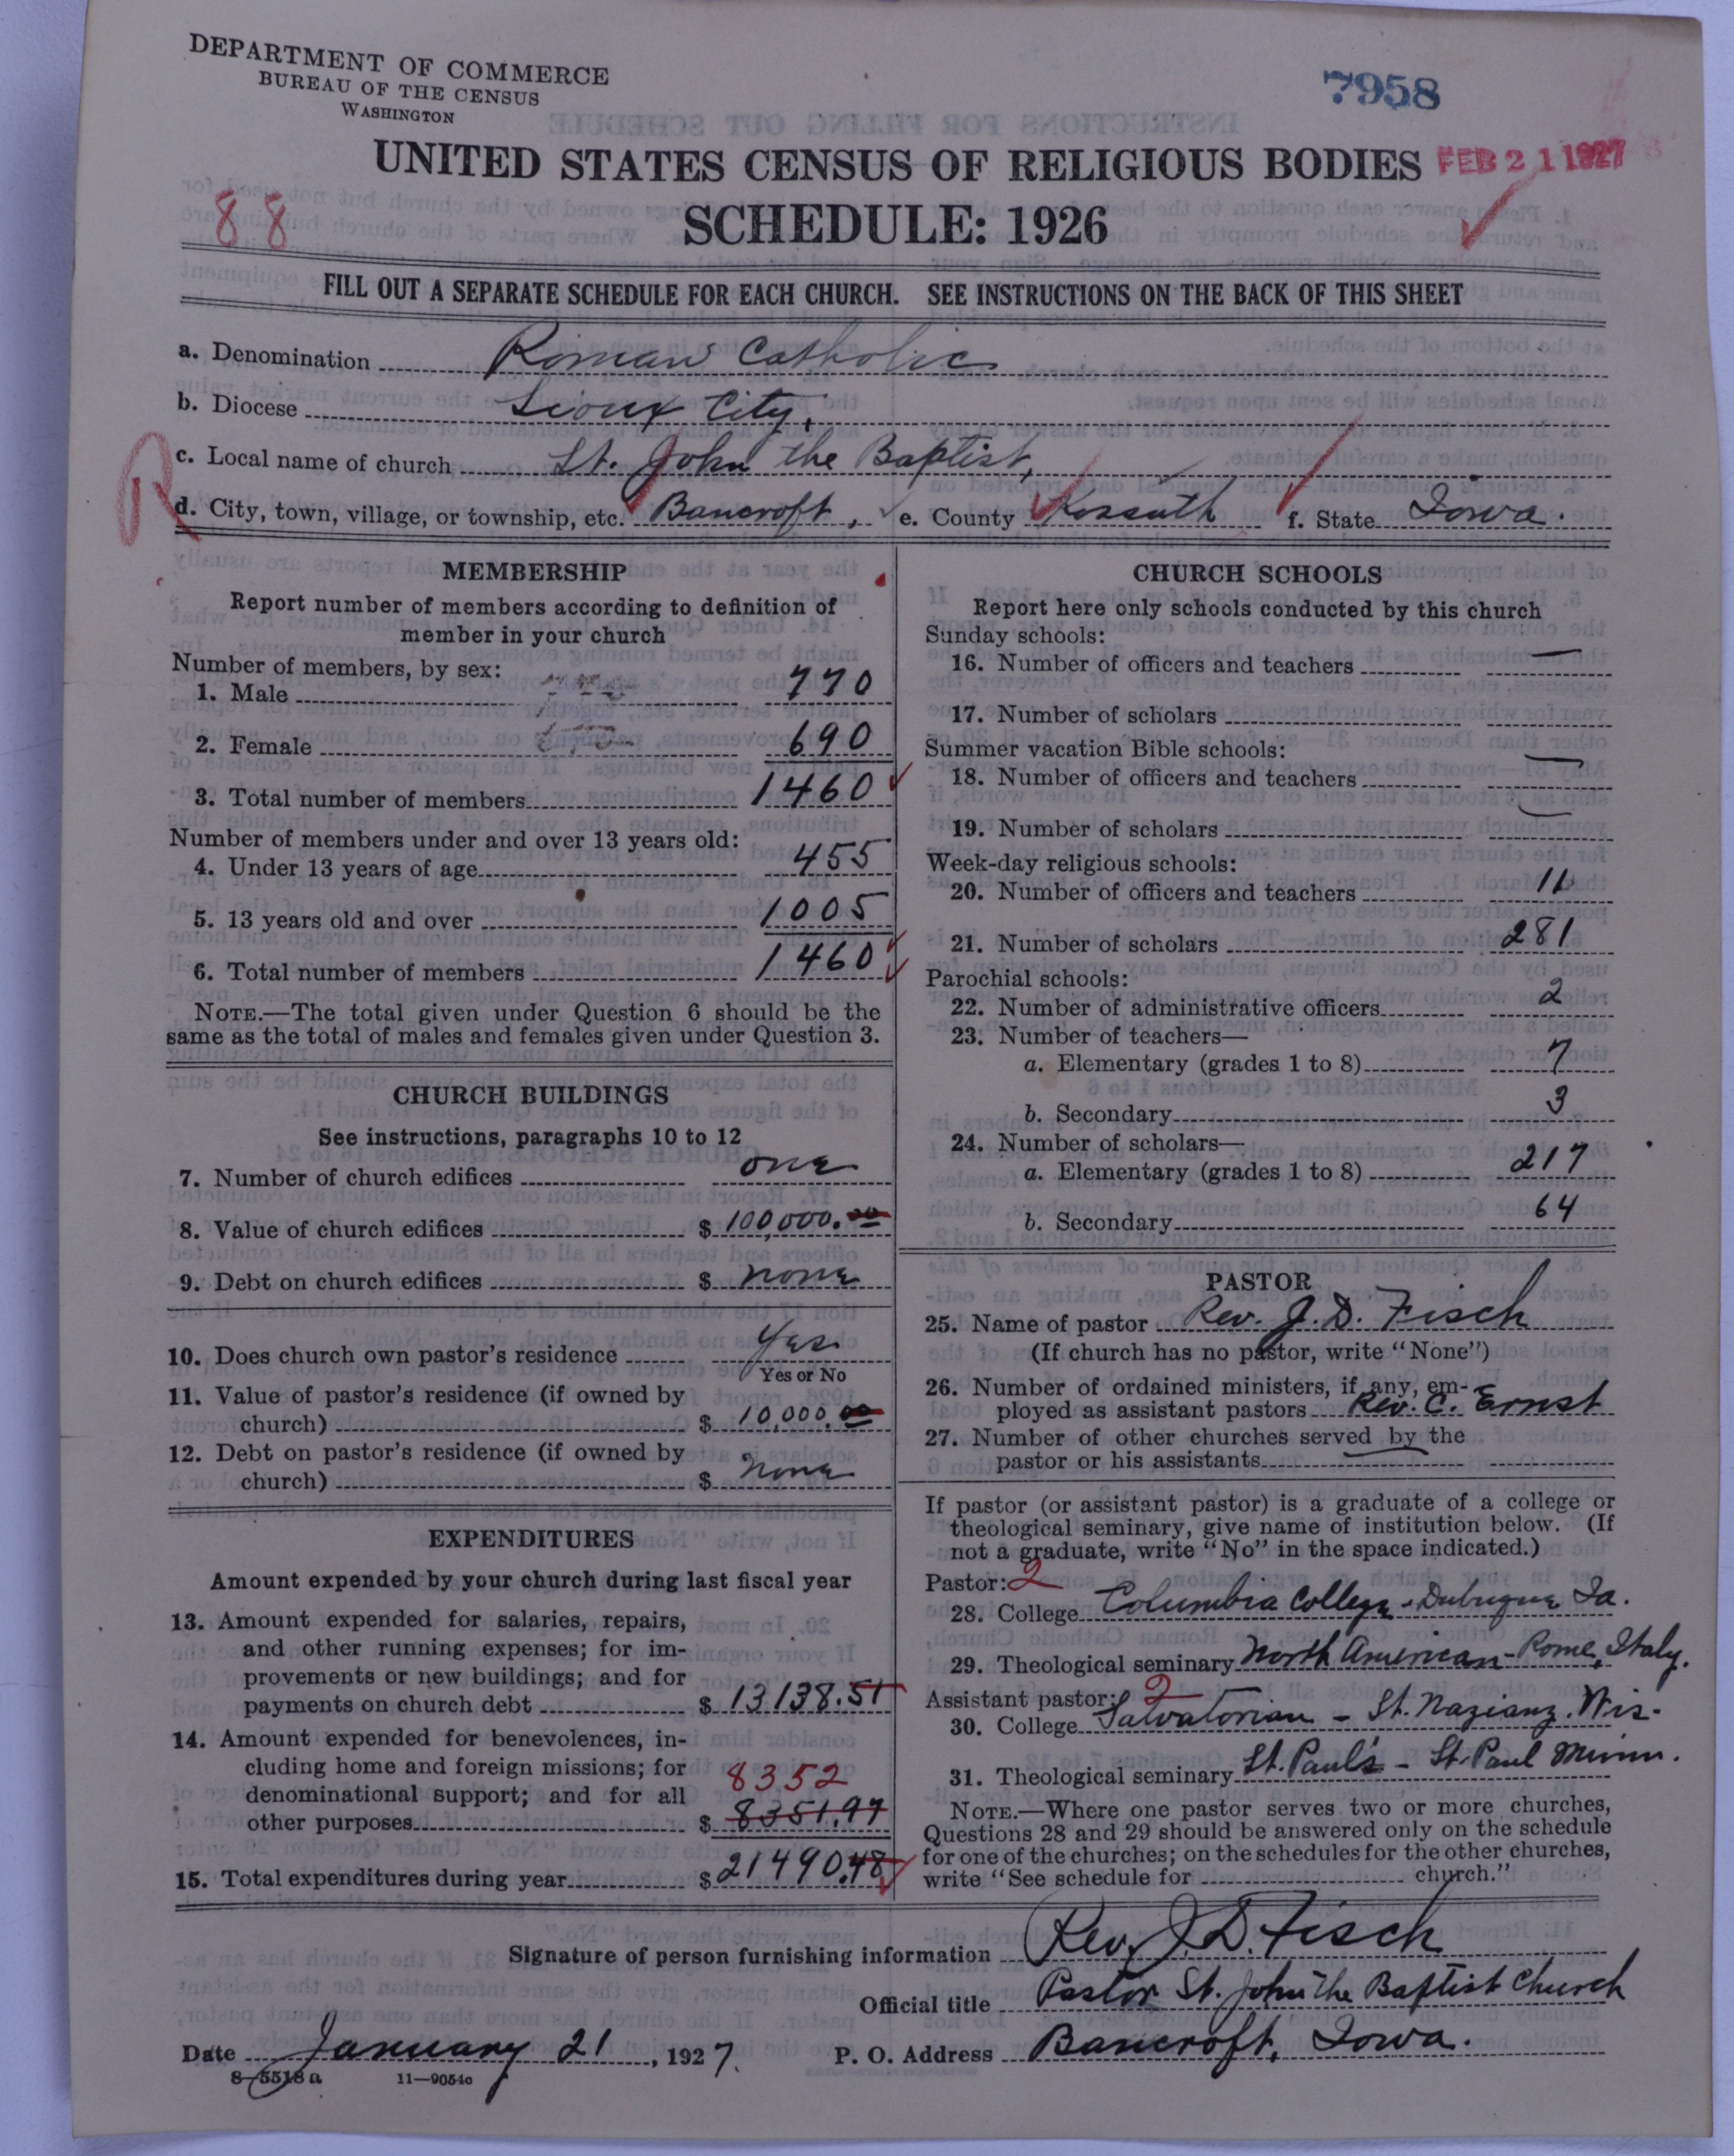 DEPARTMENT OF COMMERCE
BUREAU OF THE CENSUS
WASHINGTON
7958
UNITED STATES CENSUS OF RELIGIOUS BODIES
FEB 21 1927
88
SCHEDULE: 1926
FILL OUT A SEPARATE SCHEDULE FOR EACH CHURCH. SEE INSTRUCTIONS ON THE BACK OF THIS SHEET
a. Denomination Roman Catholic
b. Diocese Sioux City,
c. Local name of church St. John the Baptist,
R
d. City, town, village, or township, etc. Bancroft, e. County Kossuth f. State Iowa.
MEMBERSHIP
Report number of members according to definition of
member in your church
Number of members, by sex:
1. Male 770
2. Female 690
3. Total number of members 1460
Number of members under and over 13 years old:
4. Under 13 years of age 455
5. 13 years old and over 1005
6. Total number of members 1460
NOTE.—The total given under Question 6 should be the
same as the total of males and females given under Question 3.
CHURCH BUILDINGS
See instructions, paragraphs 10 to 12
7. Number of church edifices one
8. Value of church edifices $ 100,000.00
9. Debt on church edifices $ none
10. Does church own pastor's residence Yes
Yes or No
11. Value of pastor's residence (if owned by
church) $ 10,000.00
12. Debt on pastor's residence (if owned by
church) $ none
EXPENDITURES
Amount expended by your church during last fiscal year
13. Amount expended for salaries, repairs,
and other running expenses; for im-
provements or new buildings; and for
payments on church debt $ 13138.51
14. Amount expended for benevolences, in-
cluding home and foreign missions; for
denominational support; and for all 8352
other purposes $ 8351.97
15. Total expenditures during year $ 21490.48
CHURCH SCHOOLS
Report here only schools conducted by this church
Sunday schools:
16. Number of officers and teachers —
17. Number of scholars
Summer vacation Bible schools:
18. Number of officers and teachers —
19. Number of scholars —
Week-day religious schools:
20. Number of officers and teachers 11
21. Number of scholars 281
Parochial schools:
22. Number of administrative officers 2
23. Number of teachers—
a. Elementary (grades 1 to 8) 7
b. Secondary 3
24. Number of scholars—
a. Elementary (grades 1 to 8) 217
b. Secondary 64
PASTOR
25. Name of pastor Rev. J. D. Fisch
(If church has no pastor, write "None")
26. Number of ordained ministers, if any, em-
ployed as assistant pastors Rev. C. Ernst
27. Number of other churches served by the
pastor or his assistants —
If pastor (or assistant pastor) is a graduate of a college or
theological seminary, give name of institution below. (If
not a graduate, write "No" in the space indicated.)
Pastor: 2
28. College Columbia College - Dubuque Ia.
29. Theological seminary North American - Rome, Italy.
Assistant pastor: 2
30. College Salvatorian - St. Nazianz. Wis.
31. Theological seminary St. Paul's - St. Paul Minn.
NOTE.—Where one pastor serves two or more churches,
Questions 28 and 29 should be answered only on the schedule
for one of the churches; on the schedules for the other churches,
write "See schedule for church."
Signature of person furnishing information Rev. J. D. Fisch
Official title Pastor St. John the Baptist Church
Date January 21, 1927. P. O. Address Bancroft, Iowa.
8-5518a 11—9054c